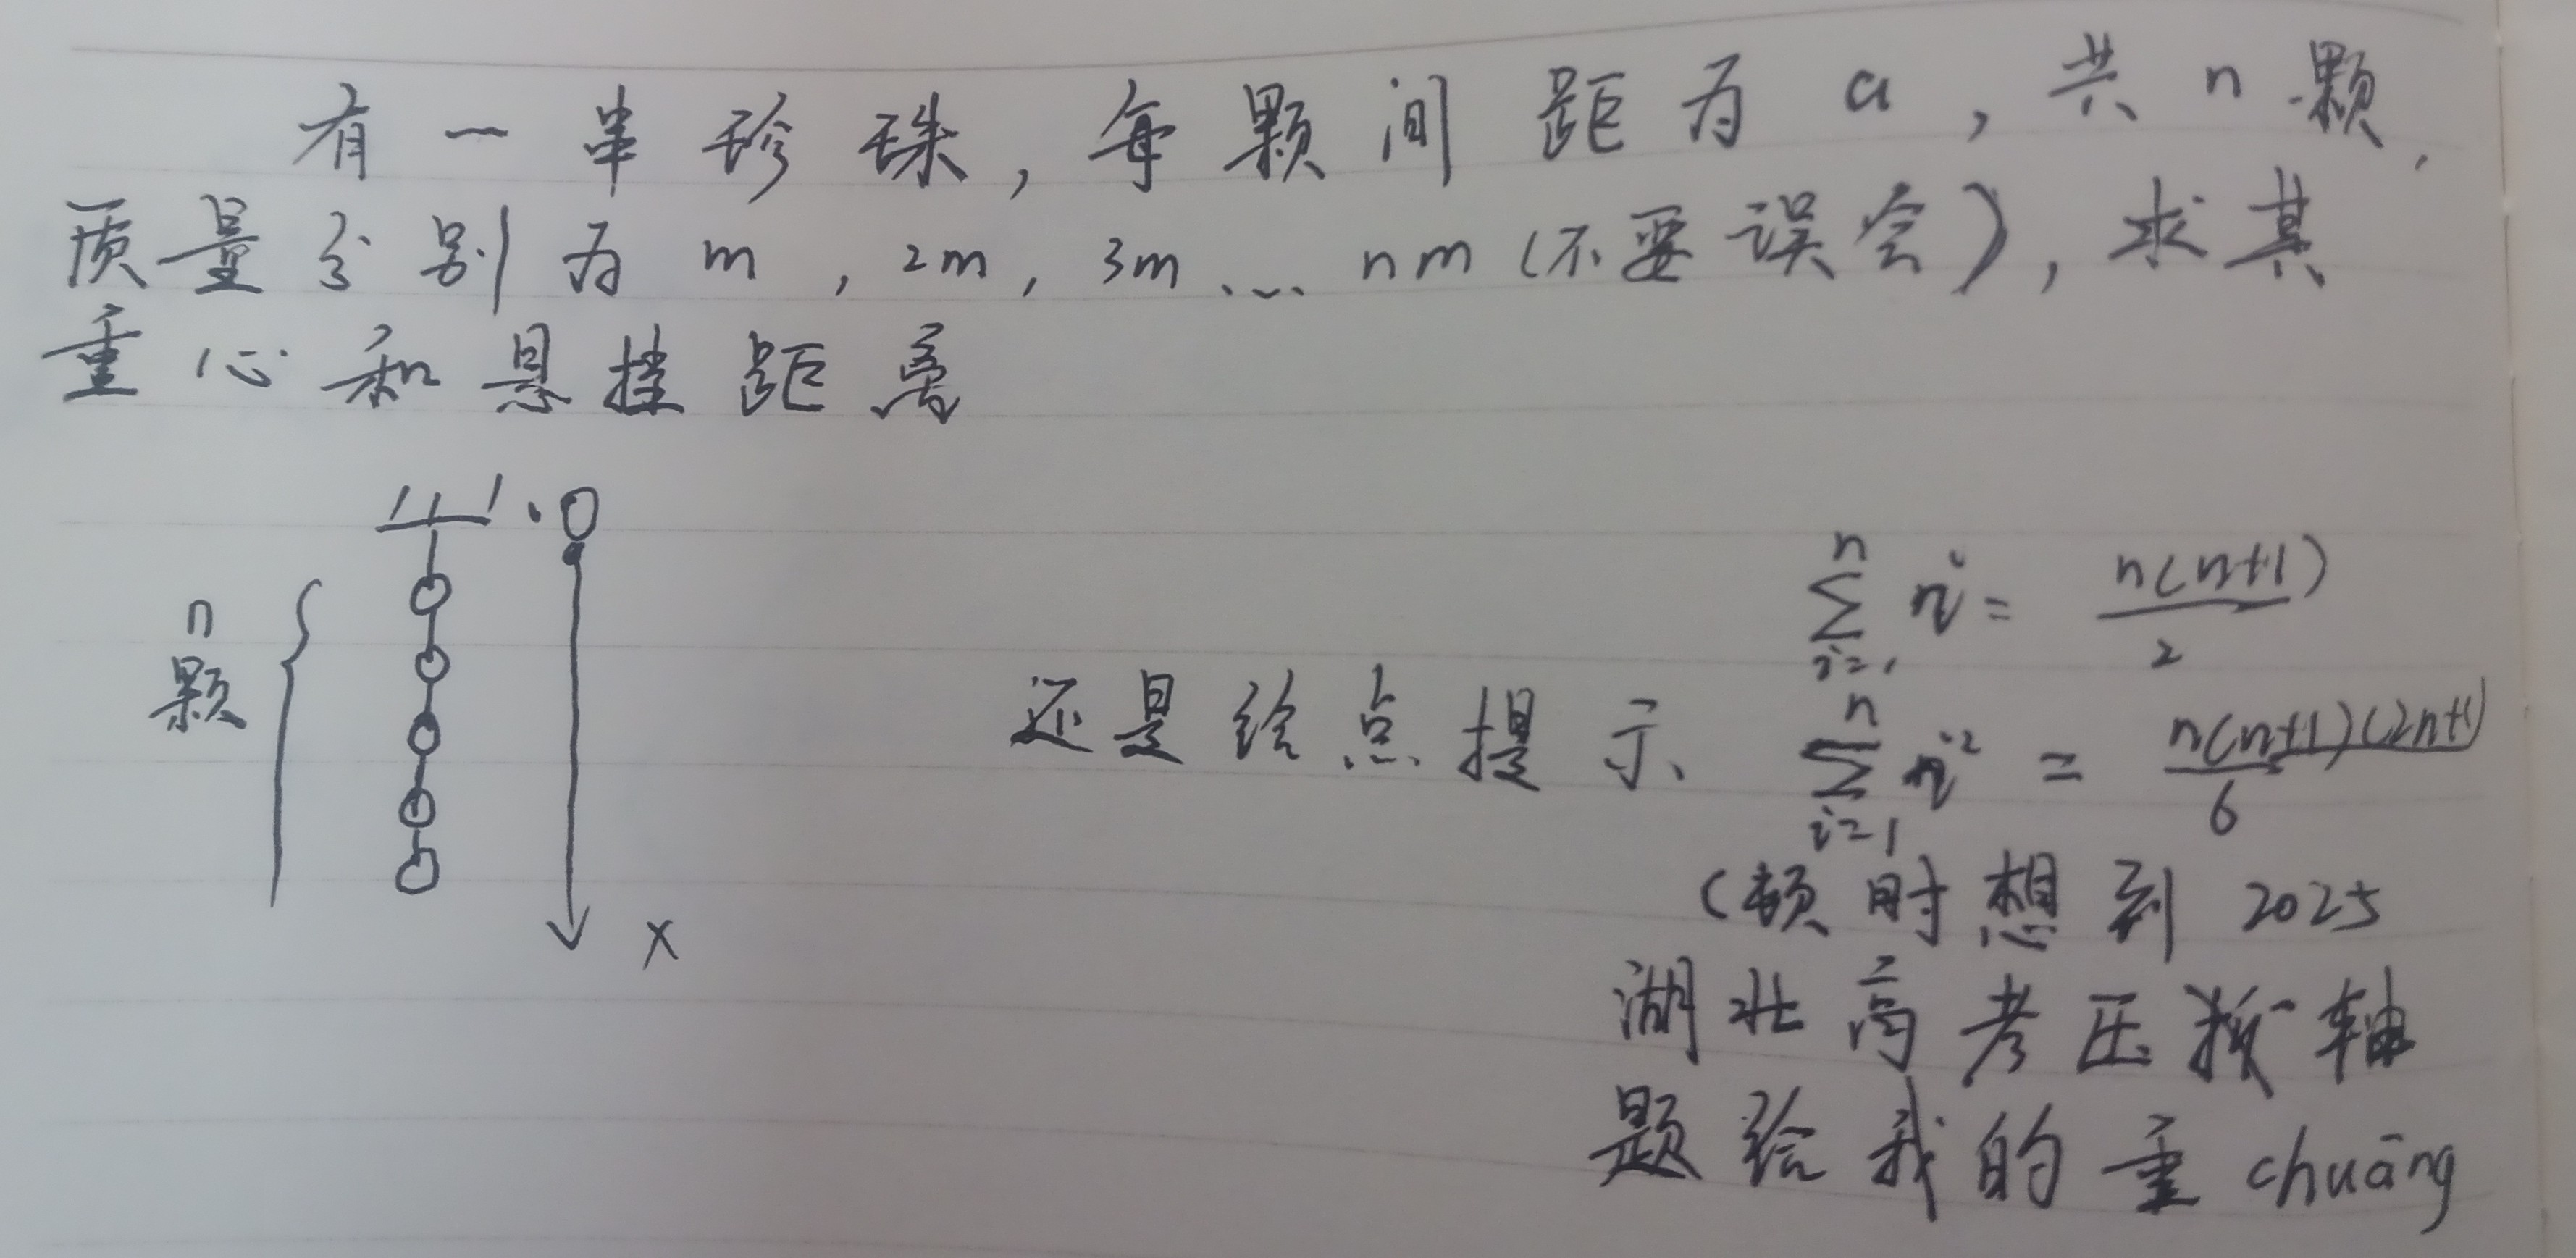 有一串珍珠，每颗间距为a，共n颗，
质量分别为m，2m，3m…nm（不要误会），求其
重心和悬挂距离
O
n
颗
x
还是给点提示
n
∑ i = n(n+1)/2
i=1
n
∑ i² = n(n+1)(2n+1)/6
i=1
（顿时想到2025
湖北高考压轴
题给我的重chuāng